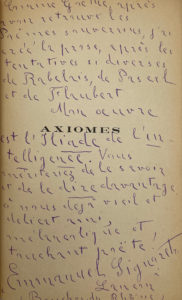 après
avoir retrouvé les
Poèmes souverains, j'ai
créé la prose, après les
tentatives si diverses
de Rabelais, de Pascal
et de Flaubert
Mon œuvre
AXIOMES
est l'Iliade de l'In
telligence. Vous
de le savoir
et de le dire davantage
à nous déjà vieil et
délicat ami,
mélancolique et
touchant poète!
Emmanuel Signoret